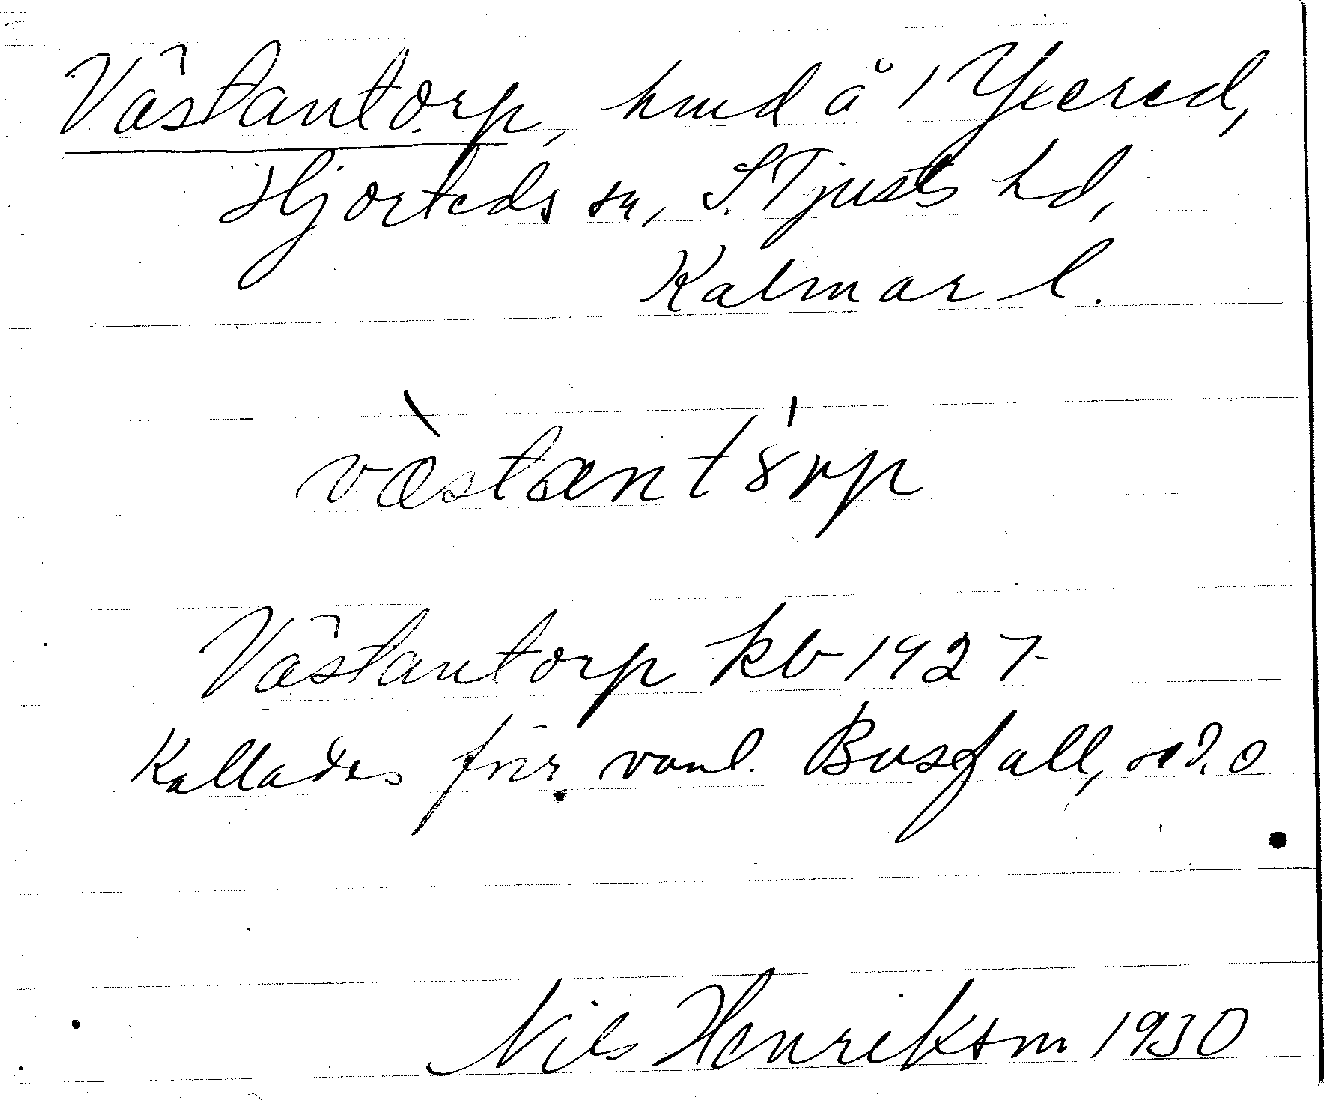 Västantorp, hmd å 1 Yxered,
Hjorteds sn, S. Tjusts hd,
Kalmar l.
væ̀stantórp
Västantorp kb 1927
Kallades förr vanl. Busfall, s.d.o
Nils Henrikson 1930